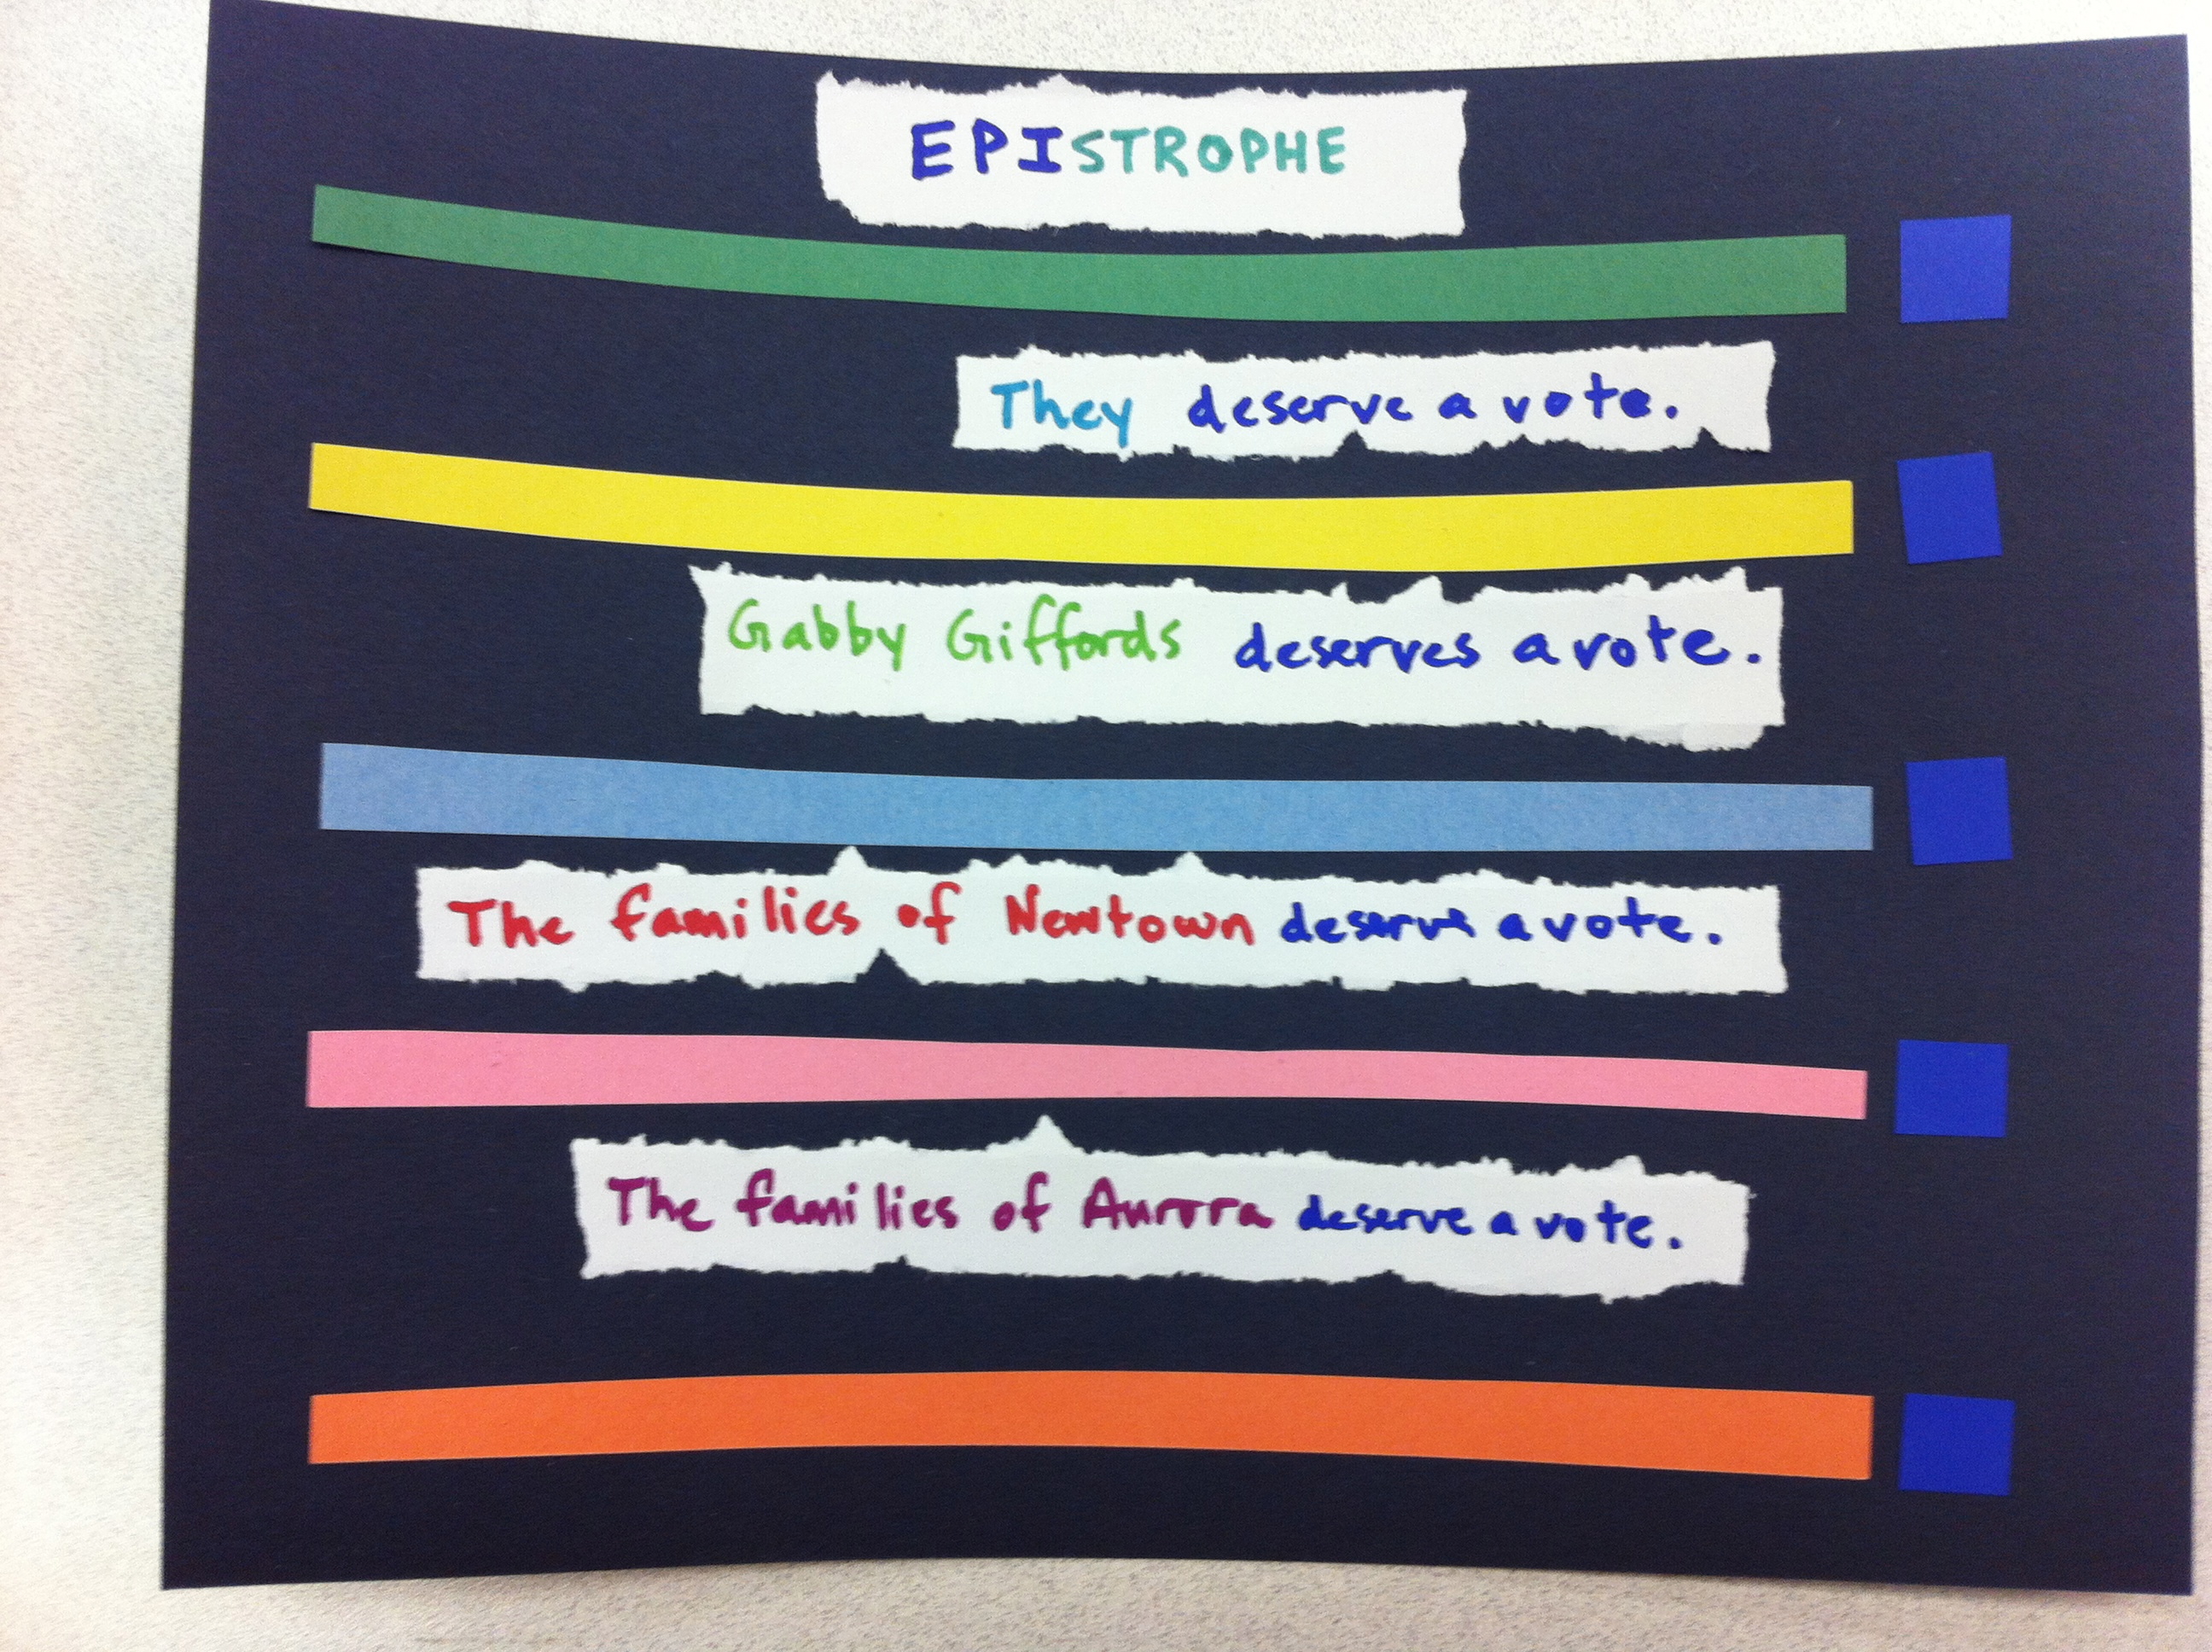 EPISTROPHE
They deserve a vote.
Gabby Giffords deserves a vote.
The families of Newtown deserve a vote.
The families of Aurora deserve a vote.